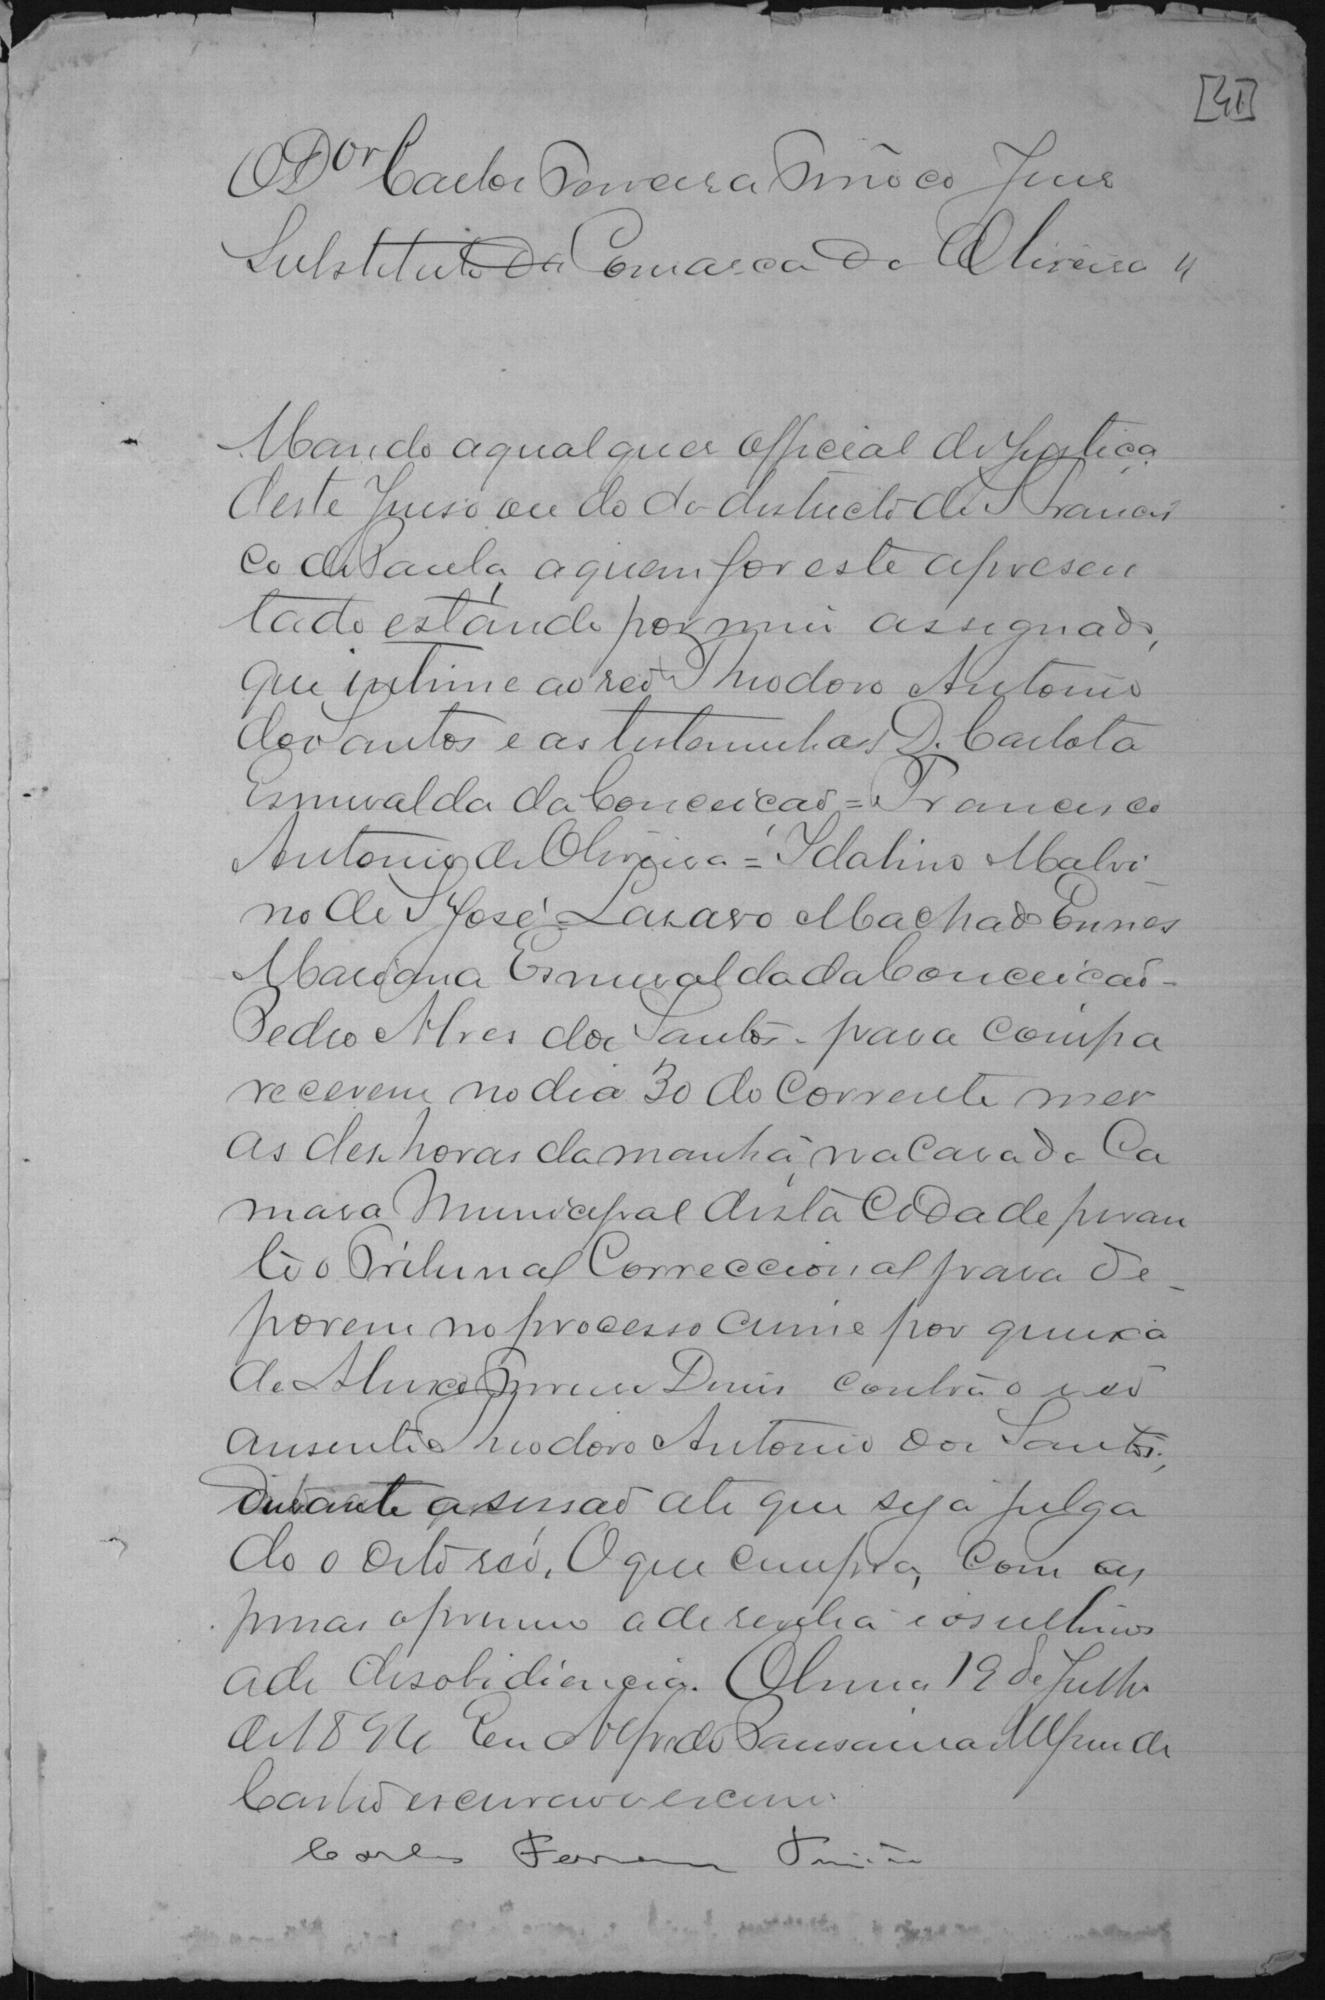 [41]
O Dor Carlos Ferreira Tinôco Juis
Substituto da Comarca de Oliveira "
Mando a qualquer official de Justiça
deste Juiso ou do do districto de S Francis
co de Paula, a quem for este apresen
tado estándo por mim assignado,
que intime ao reo Theodoro Antonio
dos Santos e as testemunhas D. Carlota
Esmeralda da Conceicão = Francisco
Antonio de Oliveira = Idalino Malvi
no de S José = Lasaro Machado Ennes
Mariana Esmeralda da Conceicão -
Pedro Alves dos Santos - para compa
recerem no dia 30 do corrente mes
as des horas da manhã, na Casa da Ca
mara Municipal desta Cidade peran
te o Tribunal Correccional para de-
porem no processo crime por queixa
de Ferreira Dinis contra o reo
ausente Theodoro Antonio dos Santos,
durante a sessão ate que seja julga
do o dito reó. O que cumpra, com as
penas o primeiro a de revelia e os ultimos
a de desobidiencia. Olivra 19 de Julho
de 1894 Eu Alfredo de
Castro escrivão o escrevi.
Carlos Ferreira Tinôco